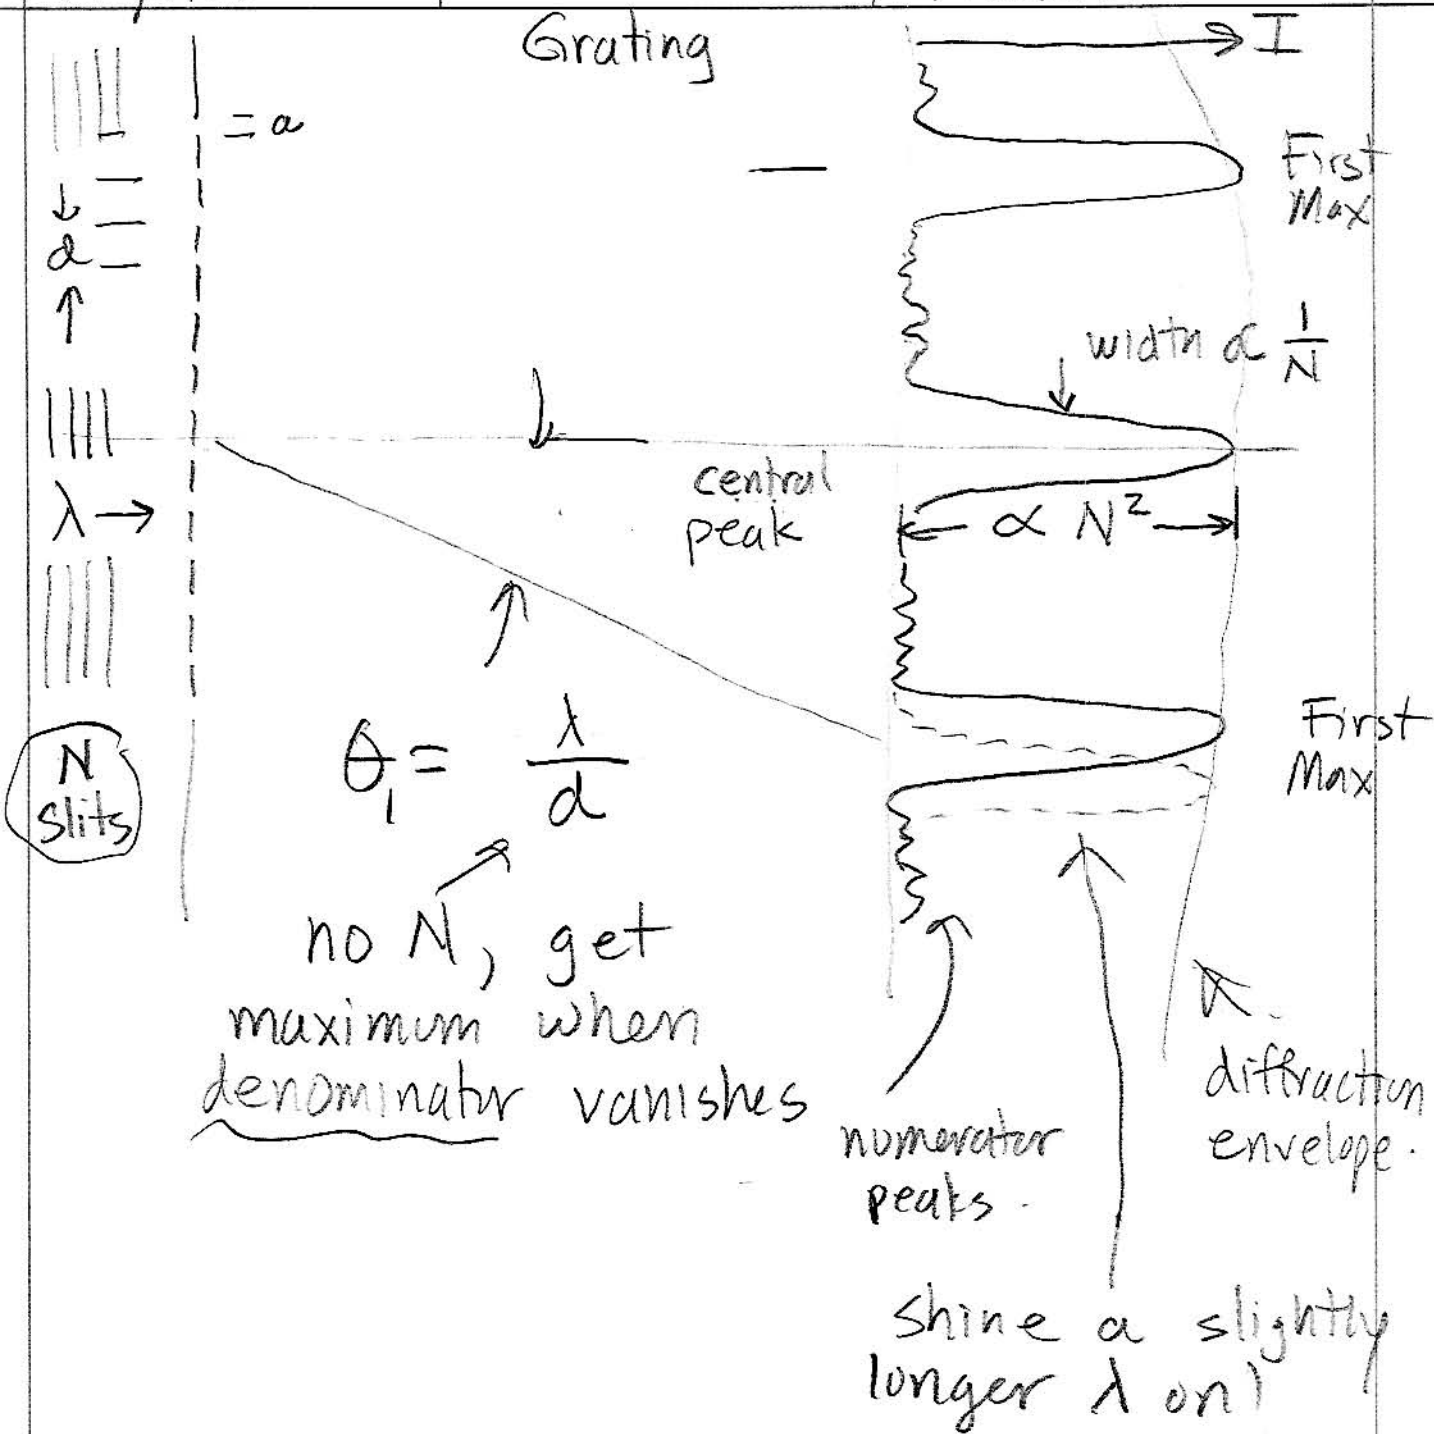 Grating
I
= a
First
Max
d
width ∝ 1/N
λ →
central
peak
∝ N²
First
Max
N
slits
θ₁ = λ/d
no N, get
maximum when
denominatr vanishes
numerator
peaks.
diffraction
envelope.
Shine a slightly
longer λ on!